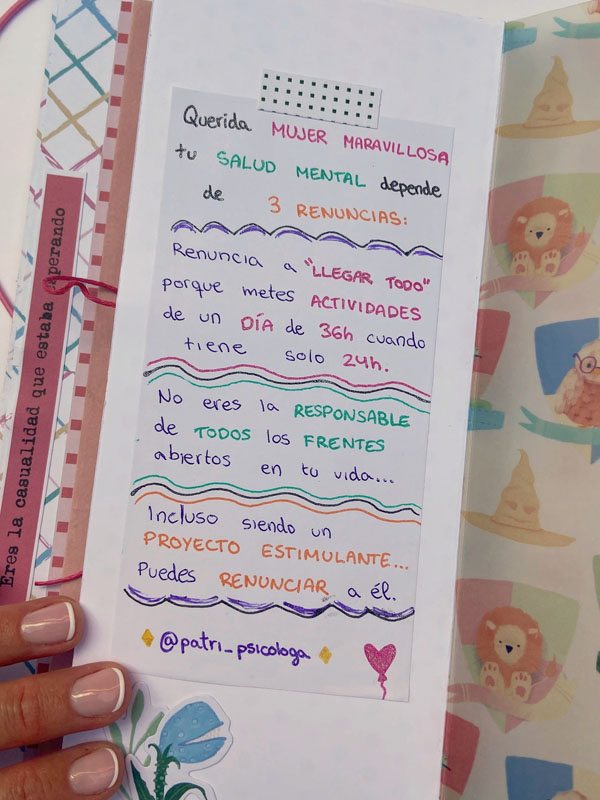 Querida MUJER MARAVILLOSA
tu SALUD MENTAL depende
de 3 RENUNCIAS:
Renuncia a "LLEGAR TODO"
porque metes ACTIVIDADES
de un DÍA de 36h cuando
tiene solo 24h.
No eres la RESPONSABLE
de TODOS los FRENTES
abiertos en tu vida...
Incluso siendo un
PROYECTO ESTIMULANTE...
Puedes RENUNCIAR a él.
@patri_psicologa
Eres la casualidad que estaba esperando